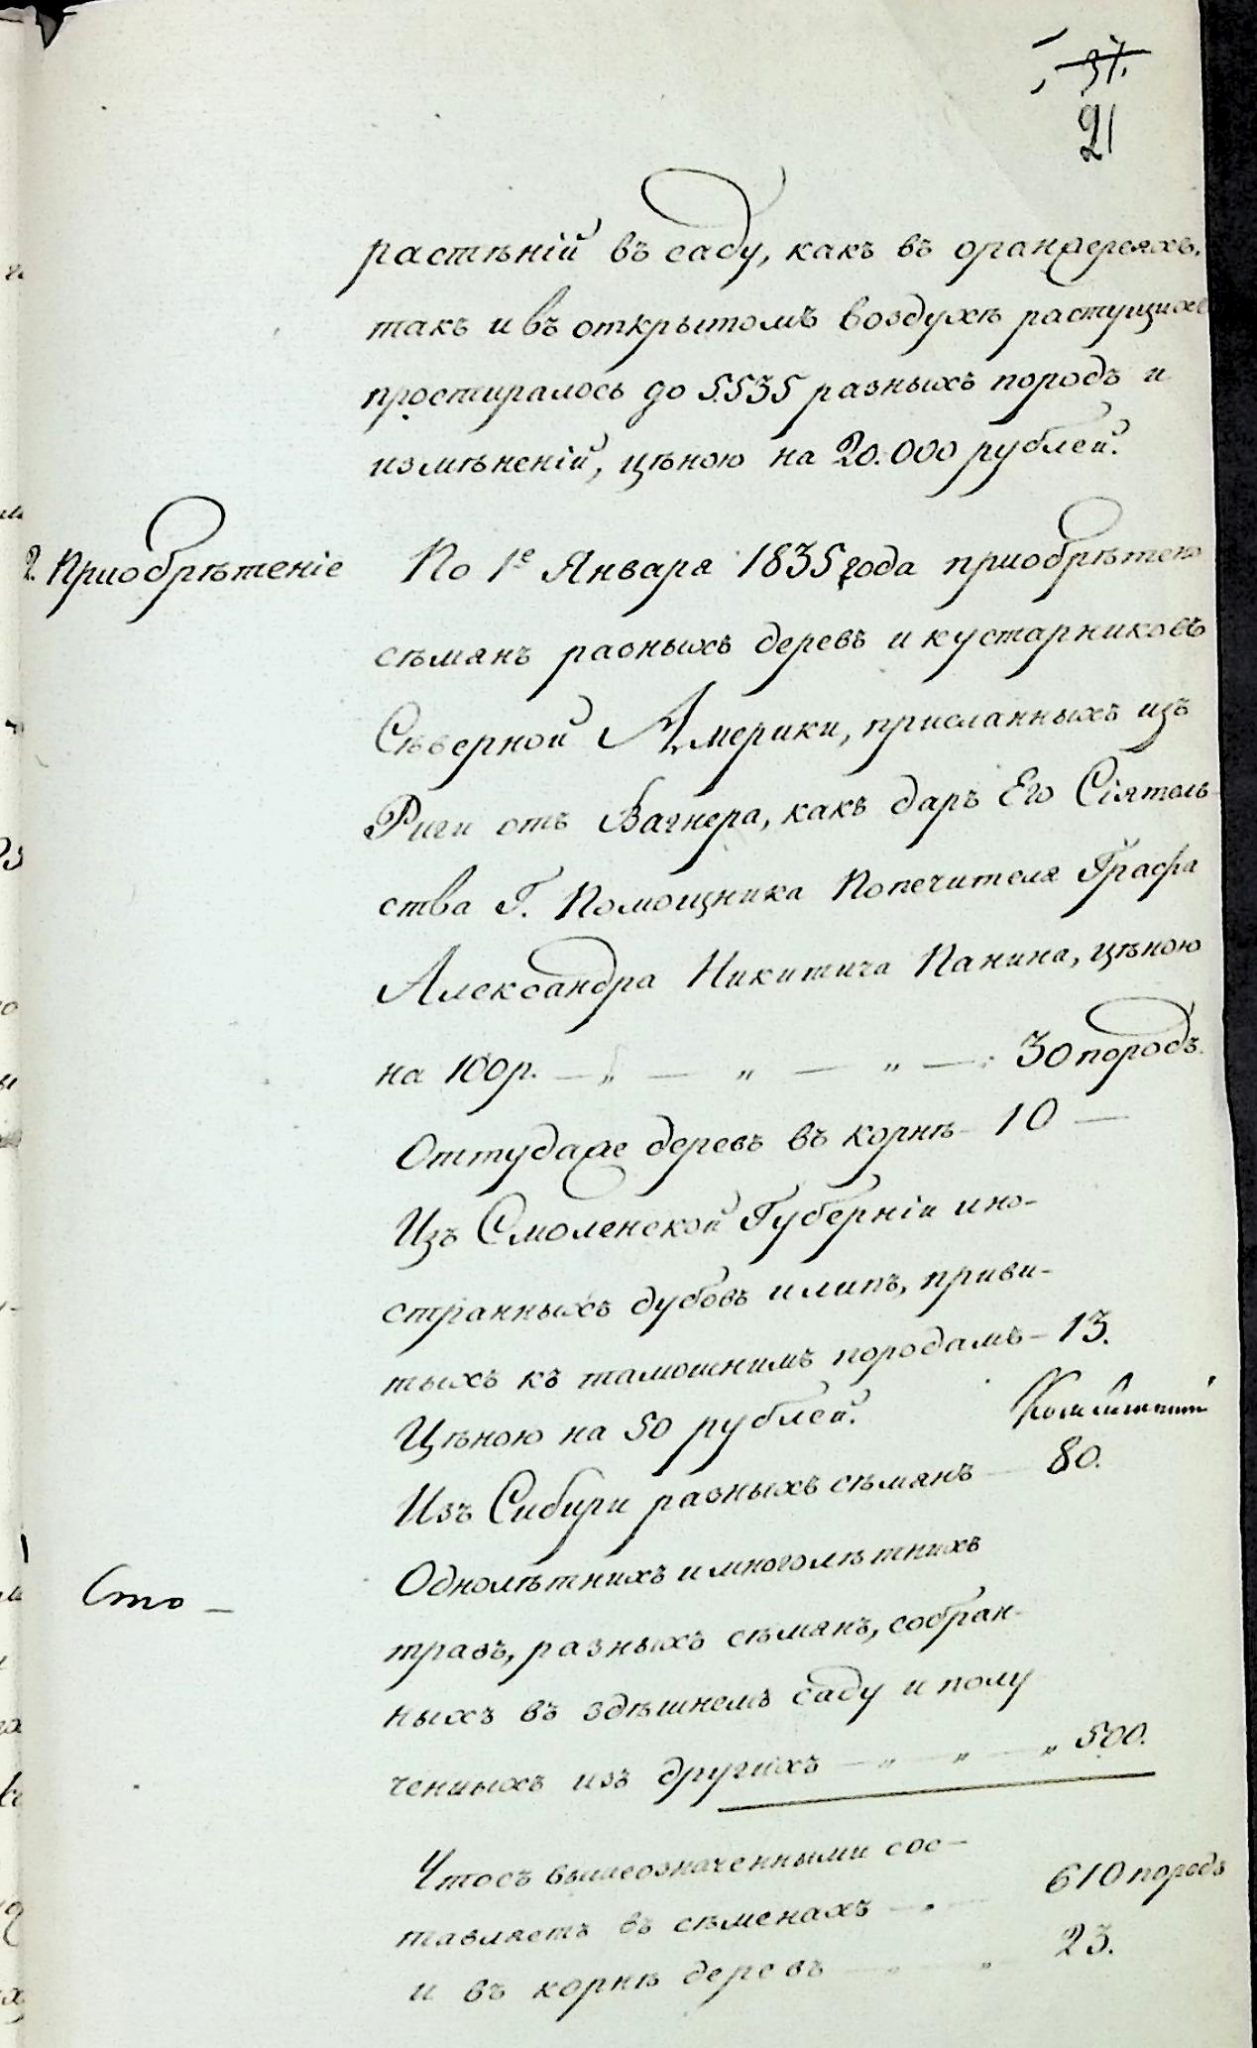 37.
21
растѣній въ саду, какъ въ оранжереяхъ,
такъ и въ открытомъ воздухѣ растущихъ
простиралось до 5535 разныхъ породъ и
измѣненій, цѣною на 20.000 рублей.
2. Приобрѣтеніе
По 1е Января 1835 года приобрѣтено
сѣмянъ разныхъ деревъ и кустарниковъ
Сѣверной Америки, присланныхъ изъ
Риги отъ Вагнера, какъ даръ Его Сіятель-
ства Г. Помощника Попечителя Графа
Александра Никитича Панина, цѣною
на 100 р. — „ — „ — „ — 30 породъ.
Оттудаже деревъ въ корнѣ - 10 —
Изъ Смоленской Губерніи ино-
странныхъ дубовъ и липъ, приви-
тыхъ къ тамошнимъ породамъ - 13.
Цѣною на 50 рублей.
Изъ Сибири разныхъ сѣмянъ — 80.
Однолѣтнихъ и многолѣтнихъ
травъ, разныхъ сѣмянъ, собран-
ныхъ въ здѣшнемъ саду и полу
ченныхъ изъ другихъ — „ — „ — „ 500.
Что съ вышеозначенными сос-
тавляетъ въ сѣменахъ — „ — 610 породъ
и въ корнѣ деревъ — „ — „ 23.
Сто —